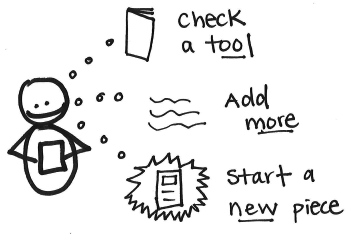 check
a tool
Add
more
start a
new piece